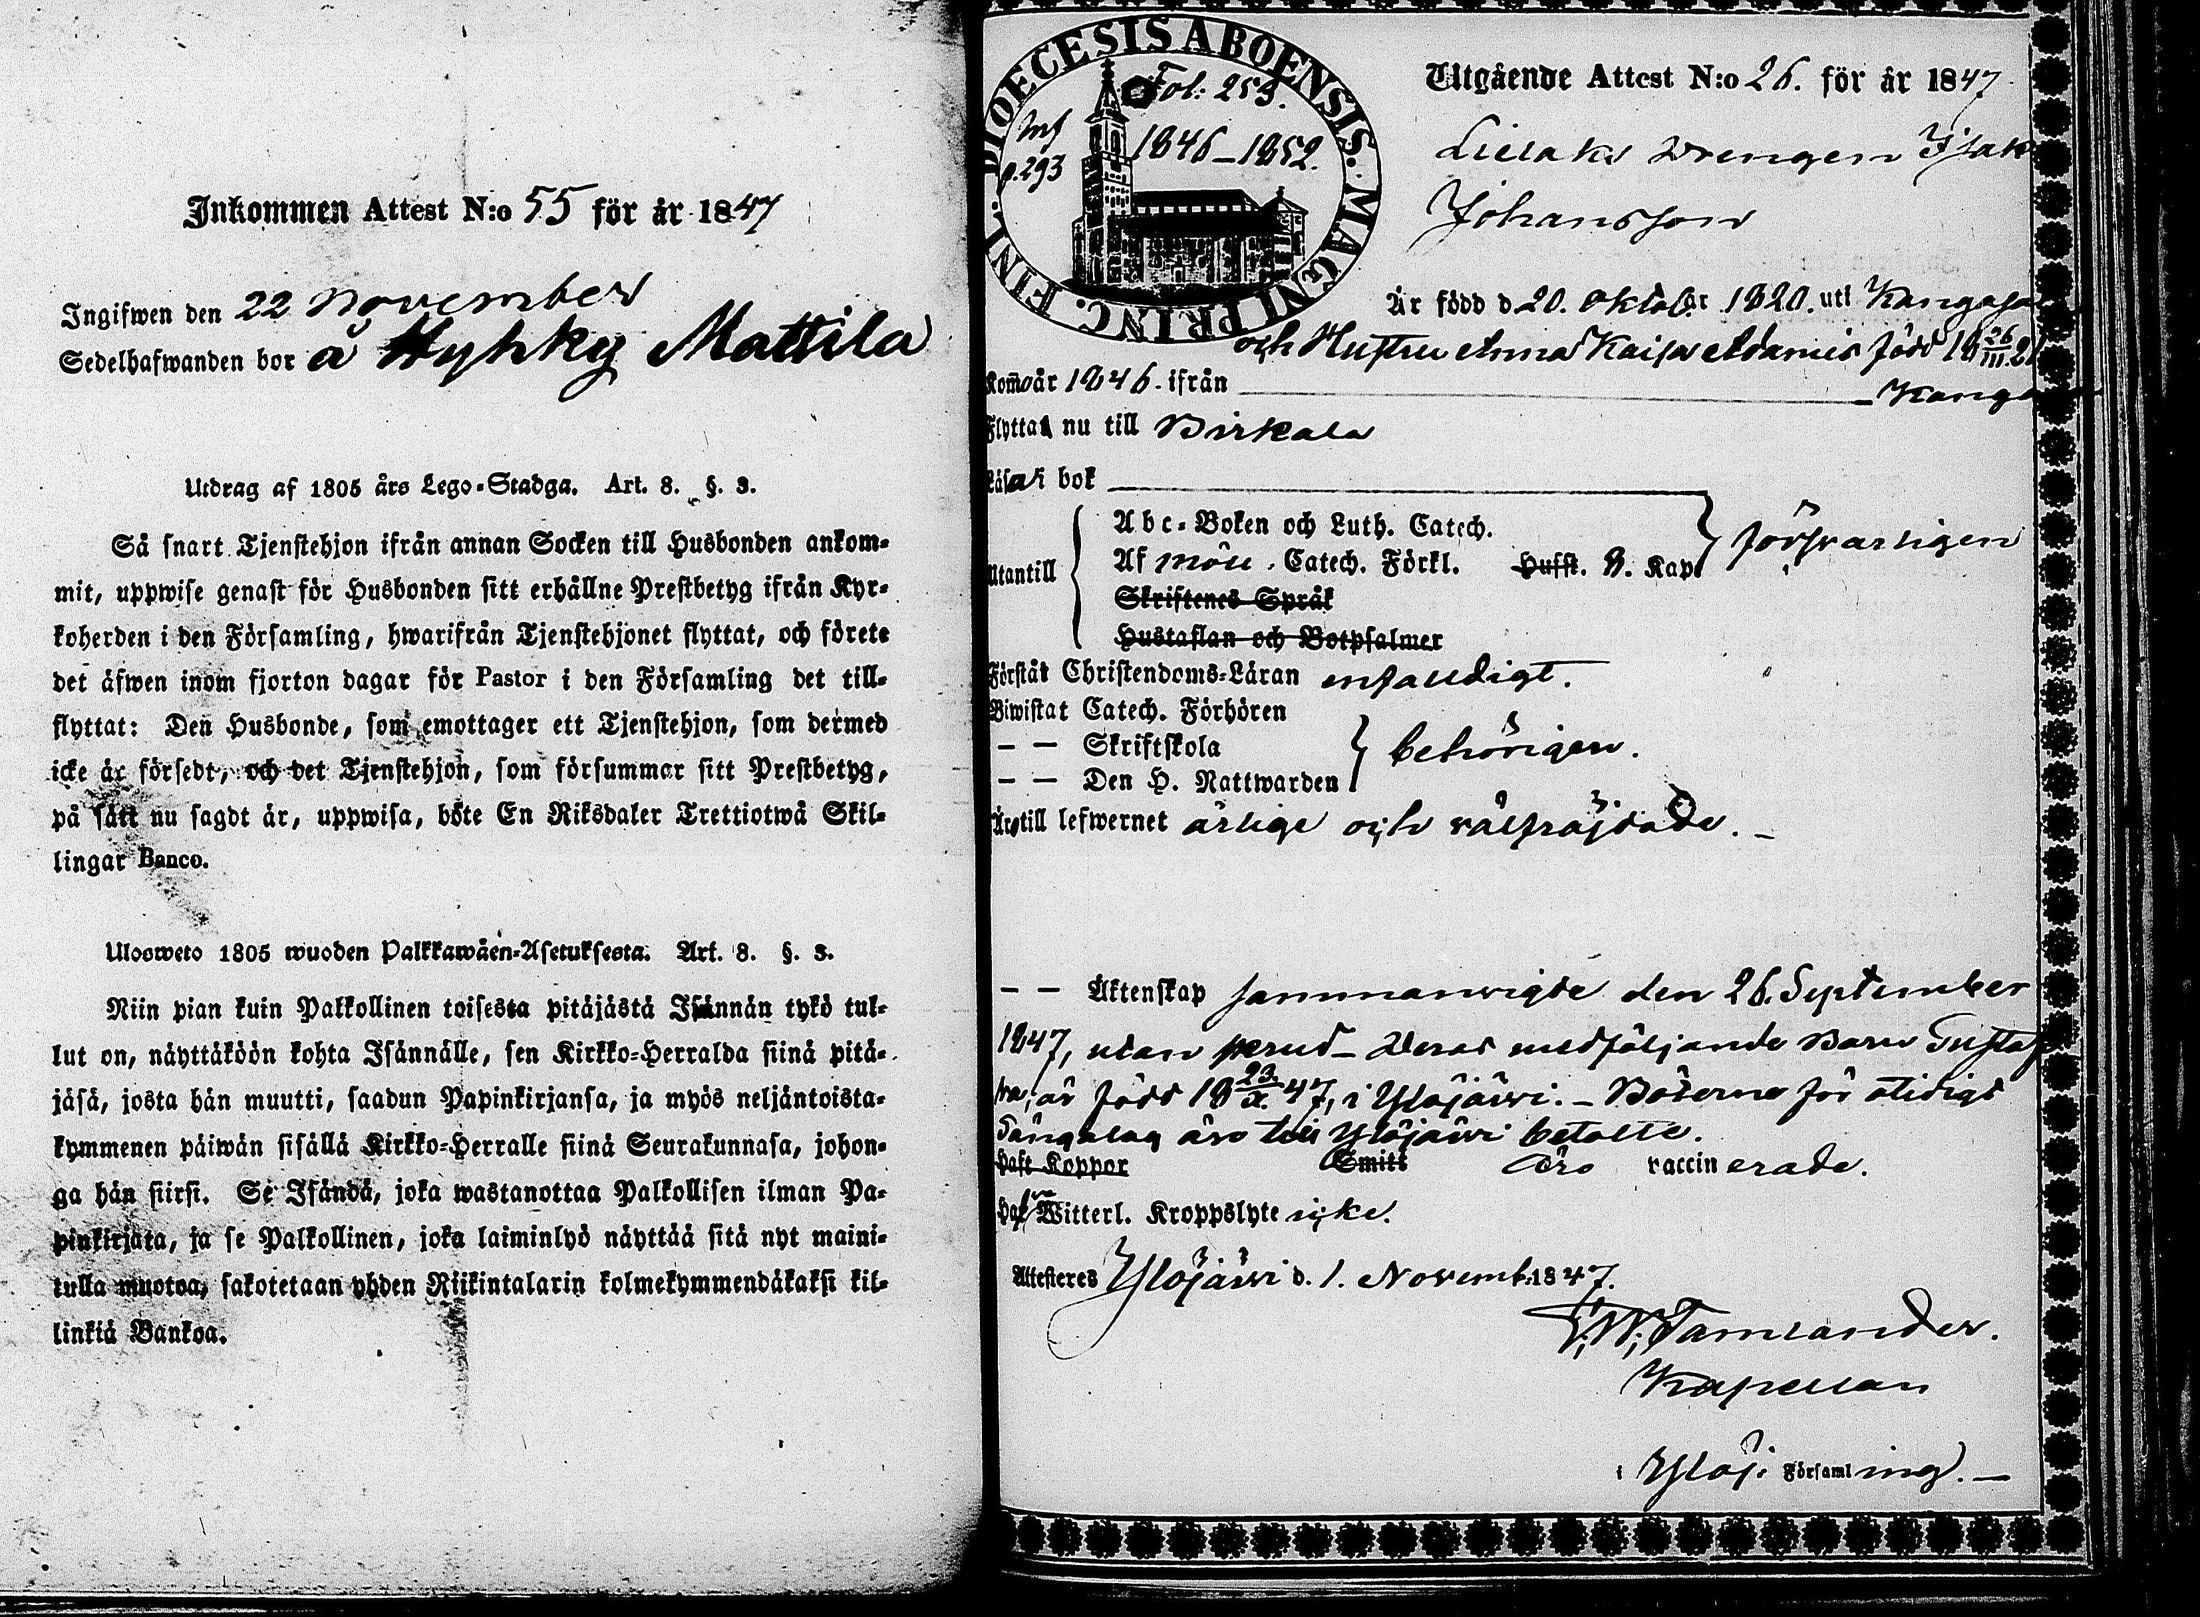 Inkommen Attest N:o 55 för år 1847
Ingifwen den 22 November
Sedelhafwanden bor å Hyhky Mattila
Utdrag af 1805 års Lego-Stadga. Art. 8. §. 3.
Så snart Tjenstehjon ifrån annan Socken till Husbonden ankom-
mit, uppwise genast för Husbonden sitt erhållne Prestbetyg ifrån Kyr-
koherden i den Församling, hwarifrån Tjenstehjonet flyttat, och förete
det äfwen inom fjorton dagar för Pastor i den Församling det till-
flyttat: Den Husbonde, som emottager ett Tjenstehjon, som dermed
icke är försedt, och det Tjenstehjon, som försummar sitt Prestbetyg,
på sätt nu sagdt är, uppwisa, böte En Riksdaler Trettiotwå Skil-
lingar Banco.
Ulosweto 1805 wuoden Palkkawäen-Asetuksesta. Art. 8. §. 3.
Niin pian kuin Palkollinen toisesta pitäjästä Isännän tykö tul-
lut on, näyttäköön kohta Isännälle, sen Kirkko-Herralda siinä pitä-
jäsä, josta hän muutti, saadun Papinkirjansa, ja myös neljäntoista-
kymmenen päiwän sisällä Kirkko-Herralle siinä Seurakunnasa, johon-
ga hän siirsi. Se Isändä, joka wastanottaa Palkollisen ilman Pa-
pinkirjata, ja se Palkollinen, joka laiminlyö näyttää sitä nyt maini-
tulla muotoa, sakotetaan yhden Riikintalarin kolmekymmendäkaksi kil-
linkiä Bankoa.
DIOECESIS ABOENSIS. MAGNI PRINC. FINL.
Fol: 253.
p. 293
1846–1852.
Utgående Attest N:o 26. för år 1847
Lielaks Drengen Isak
Johansson
Är född d 20. Oktob. år 1820. uti Kangasa
och Hustru Anna Kaisa Adamsd född 18 26/III. 2
Kommo år 1846. ifrån Kanga
Flytta nu till Birkala
Läsa i bok
Utantill
Abc-Boken och Luth. Catech.
Af Catech. Förkl. Husst. 8. Kap. försvarligen
Skriftenes Språk
Hustaflan och Botpsalmer
Förstår Christendoms-Läran enfaldigt.
Biwistat Catech. Förhören
— — Skriftskola behörigen.
— — Den H. Nattwarden
Äro till lefwernet ärlige och välfräjdade. –
— — Äktenskap sammanvigde den 26. September
1847, utan Deras medföljande Barn Gustaf
va, är född 18 23/X. 47, i Ylöjärvi. – Böterne för otidigt
Sängalag äro till Ylöjärvi betalte.
Haft Koppor Smitt Äro vaccinerade.
Hafva Witterl. Kroppslyte icke.
Attesteres Ylöjärvi d. 1. Novemb. 1847.
Tamlander.
Kapellan
i Ylöj. Församling. –